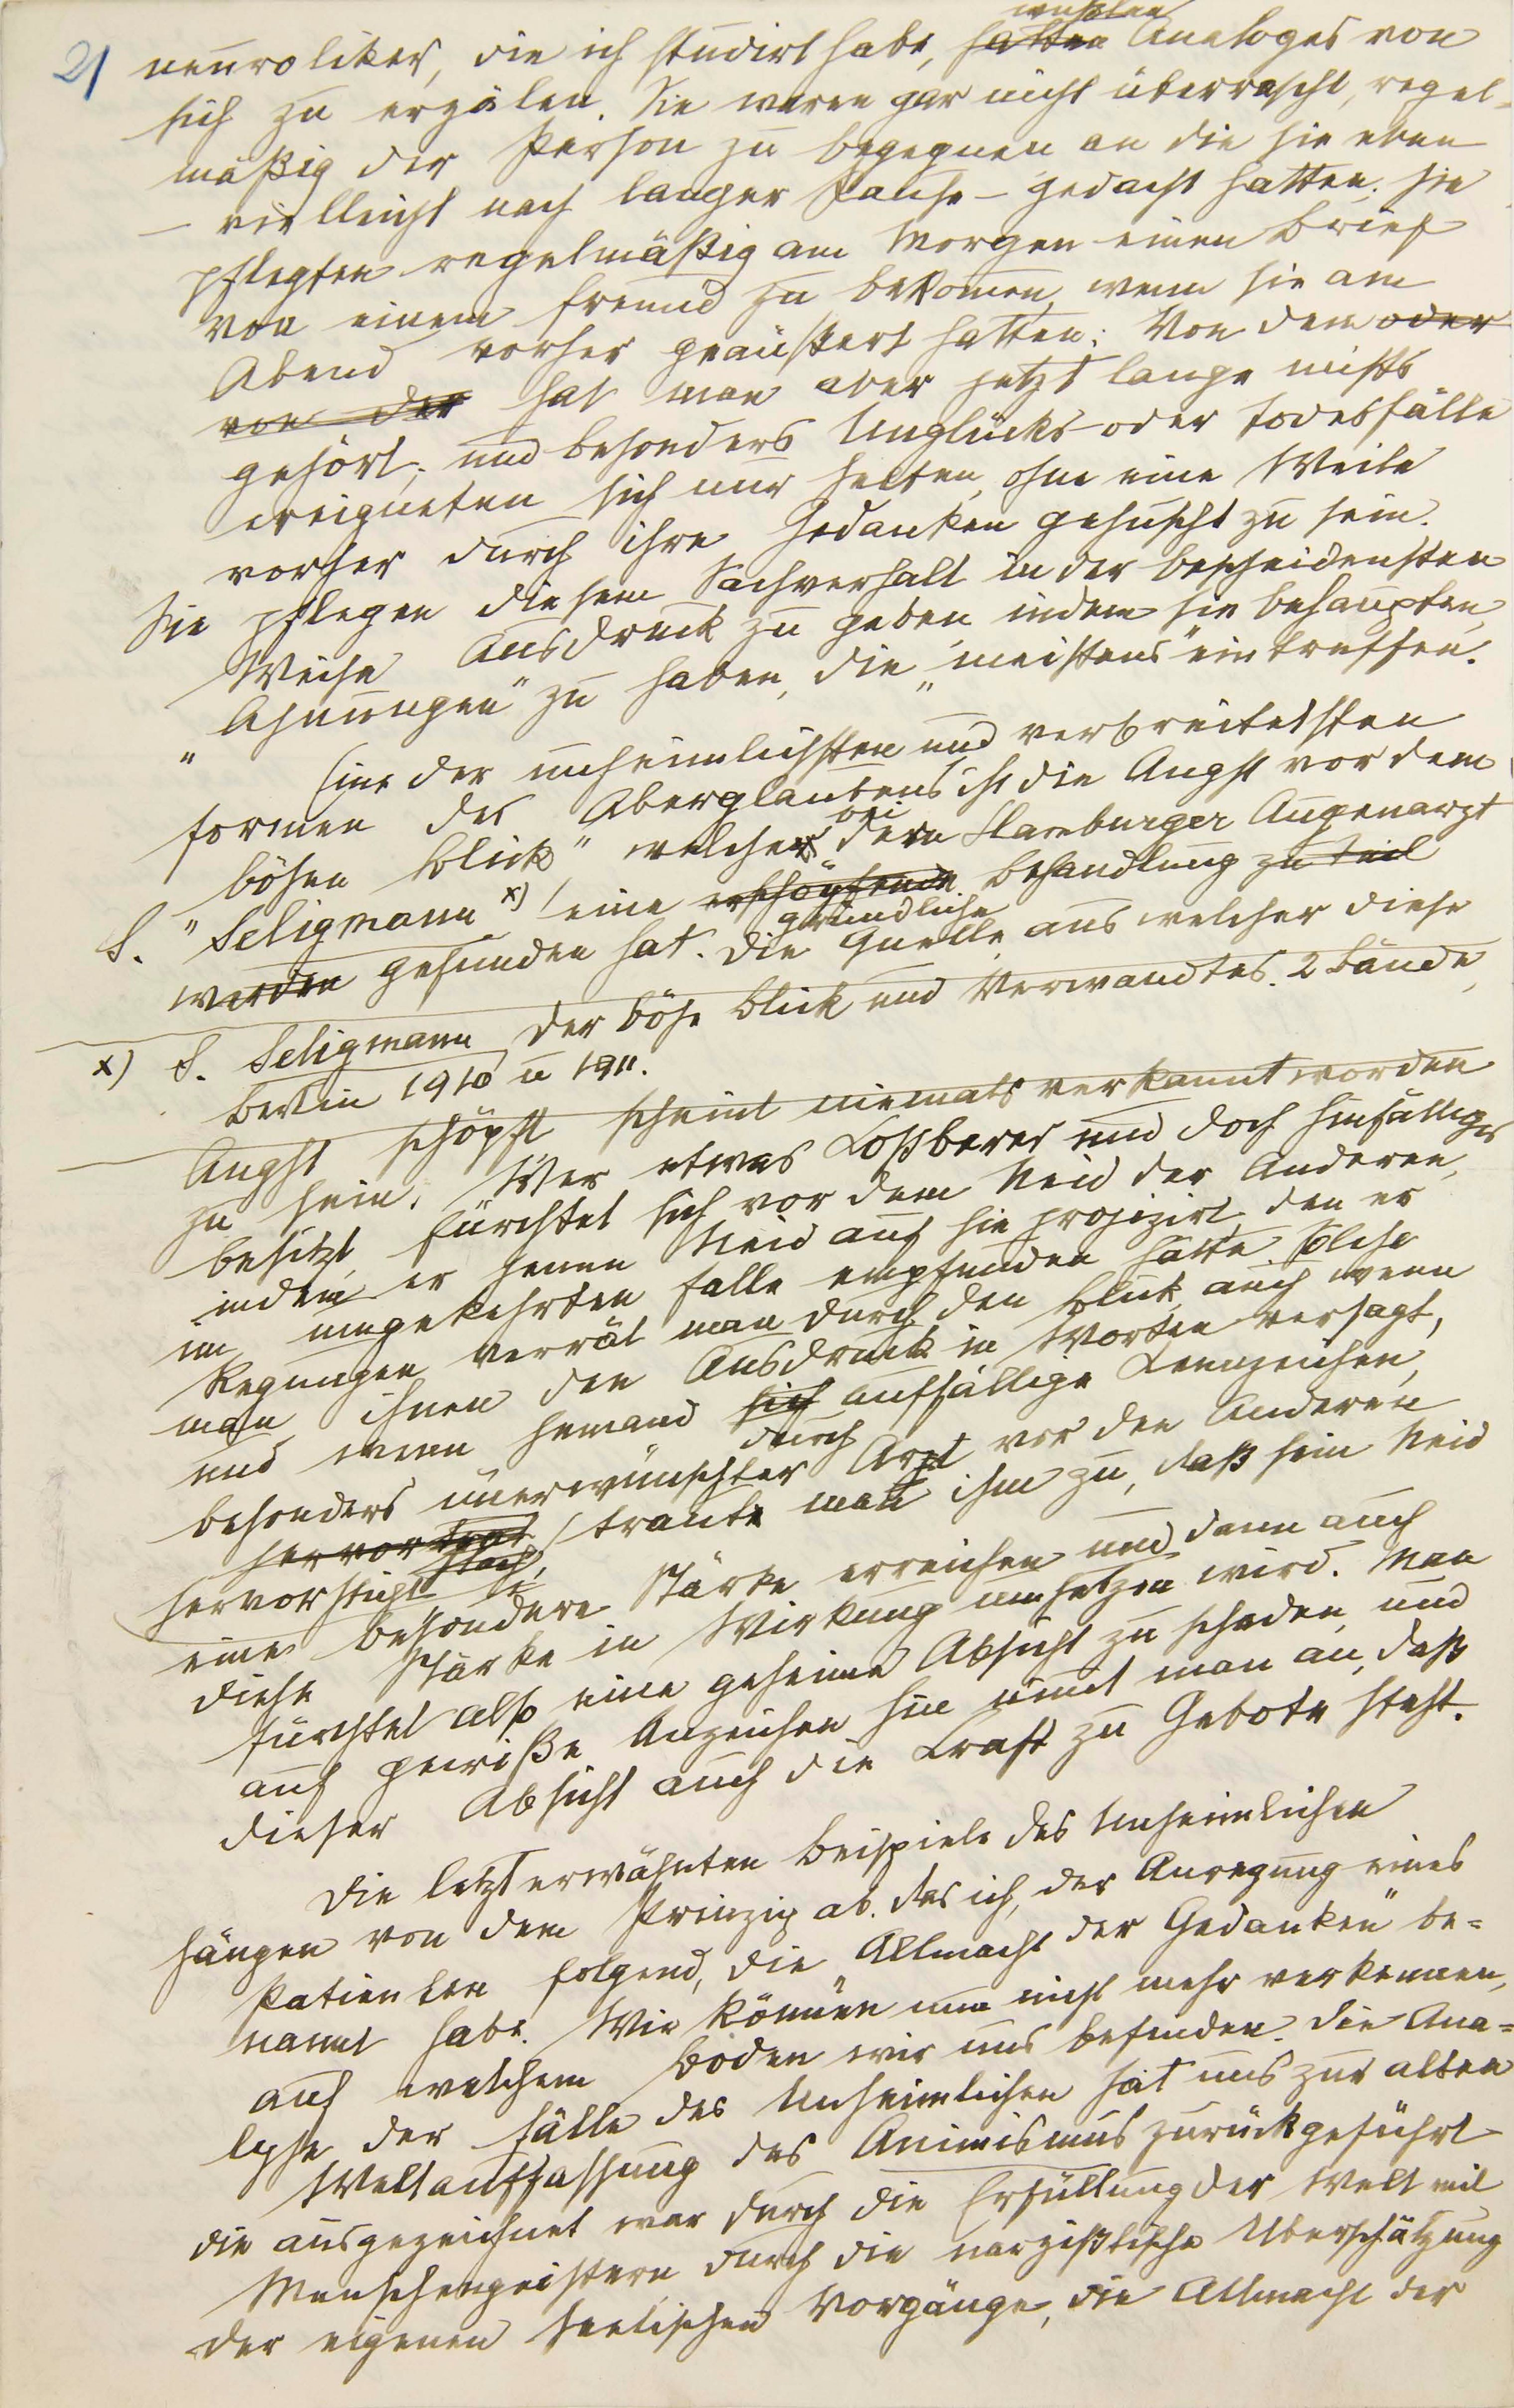 21
neurotiker, die ich studirt habe, hatten wußten Analoges von
sich zu erzälen. Sie waren gar nicht überrascht, regel-
mäßig der Person zu begegnen an die sie eben
– vielleicht nach langer Pause – gedacht hatten; sie
pflegten regelmäßig am Morgen einen Brief
von einem Freund zu bekomen, wenn sie am
Abend vorher geäußert hatten: Von dem oder
von der hat man aber jetzt lange nichts
gehört; und besonders Unglücks- oder Todesfälle
ereigneten sich nur selten, ohne eine Weile
vorher durch ihre Gedanken gehuscht zu sein.
Sie pflegen diesem Sachverhalt in der bescheidensten
Weise Ausdruck zu geben, indem sie behaupten,
„Ahnungen“ zu haben, die „meistens“ eintreffen.
Eine der unheimlichsten und verbreitetsten
Formen des Aberglaubens ist die Angst vor dem
„bösen Blick“, welcher bei dem Hamburger Augenarzt
S. Seligmann x) eine erschöpfende gründliche Behandlung zu teil
werden gefunden hat. Die Quelle, aus welcher diese
x) S. Seligmann Der böse Blick und Verwandtes. 2 Bände,
Berlin 1910 u 1911.
Angst schöpft scheint niemals verkannt worden
zu sein. Wer etwas Kostbares und doch Hinfälliges
besitzt, fürchtet sich vor dem Neid der Anderen,
indem er jenen Neid auf sie projizirt, den er
im umgekehrten Falle empfunden hätte. Solche
Regungen verrät man durch den Blick, auch wenn
man ihnen den Ausdruck in Worten versagt,
und wenn jemand sich durch auffällige Kennzeichen,
besonders unerwünschter Art vor den Anderen
hervortrat,
hervorsticht stach, traute man ihm zu, daß sein Neid
eine besondere Stärke erreichen und dann auch
diese Stärke in Wirkung umsetzen wird. Man
fürchtet also eine geheime Absicht zu schaden, und
auf gewiße Anzeichen hin nimt man an, daß
dieser Absicht auch die Kraft zu Gebote steht.
Die letzterwähnten Beispiele des Unheimlichen
hängen von dem Prinzip ab, das ich, der Anregung eines
Patienten folgend, die „Allmacht der Gedanken“ be-
nannt habe. Wir können nun nicht mehr verkennen,
auf welchem Boden wir uns befinden. Die Ana-
lyse der Fälle des Unheimlichen hat uns zur alten
Weltauffassung des Animismus zurückgeführt
die ausgezeichnet war durch die Erfüllung der Welt mit
Menschengeistern, durch die narzißtische Überschätzung
der eigenen seelischen Vorgänge, die Allmacht der